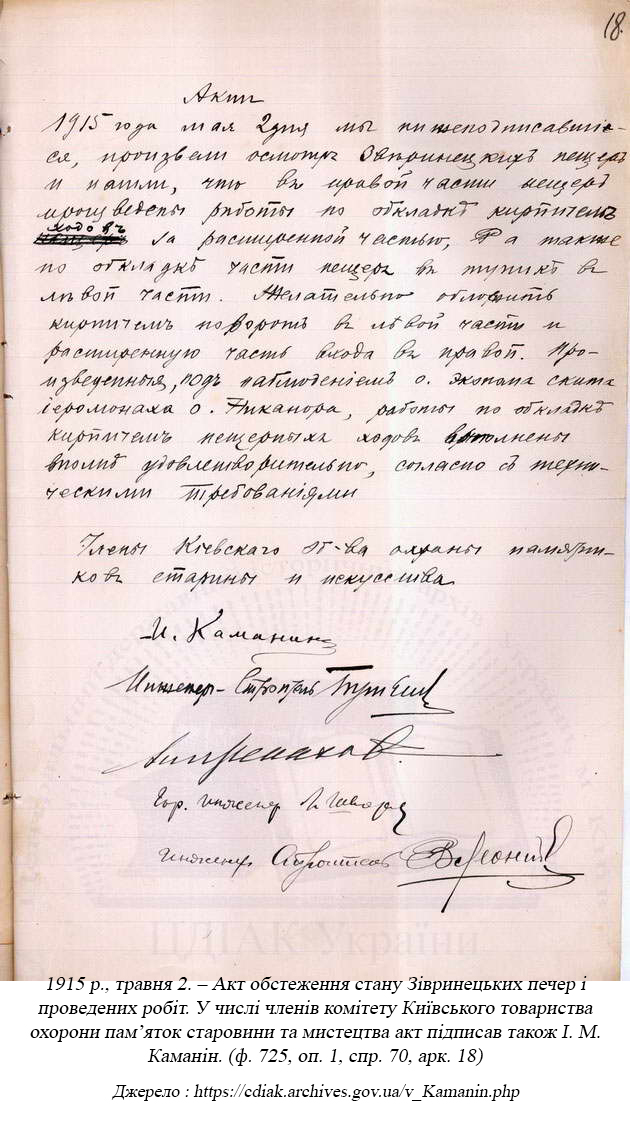 18.
Актъ
1915 года мая 2 дня мы нижеподписавшіе-
ся, произвели осмотръ Звѣринецкихъ пещеръ
и нашли, что въ правой части пещеръ
произведены работы по обкладкѣ кирпичемъ
ходовъ за расширенной частью, а также
по обкладкѣ части пещеръ въ тупикѣ въ
лѣвой части. Желательно обложить
кирпичемъ поворотъ въ лѣвой части и
расширенную часть входа въ правой. Про-
изведенныя, подъ наблюденіемъ о. эконома скита
іеромонаха о. Никанора, работы по обкладкѣ
кирпичемъ пещерныхъ ходовъ выполнены
вполнѣ удовлетворительно, согласно съ техни-
ческими требованіями
Члены Кіевскаго об-ва охраны памятни-
ковъ старины и искусства
И. Каманинъ
Инженеръ-Строитель
Гор. инженер
инженер Строитель
ЦДІАК України
1915 р., травня 2. – Акт обстеження стану Звіринецьких печер і
проведених робіт. У числі членів комітету Київського товариства
охорони пам’яток старовини та мистецтва акт підписав також І. М.
Каманін. (ф. 725, оп. 1, спр. 70, арк. 18)
Джерело : https://cdiak.archives.gov.ua/v_Kamanin.php